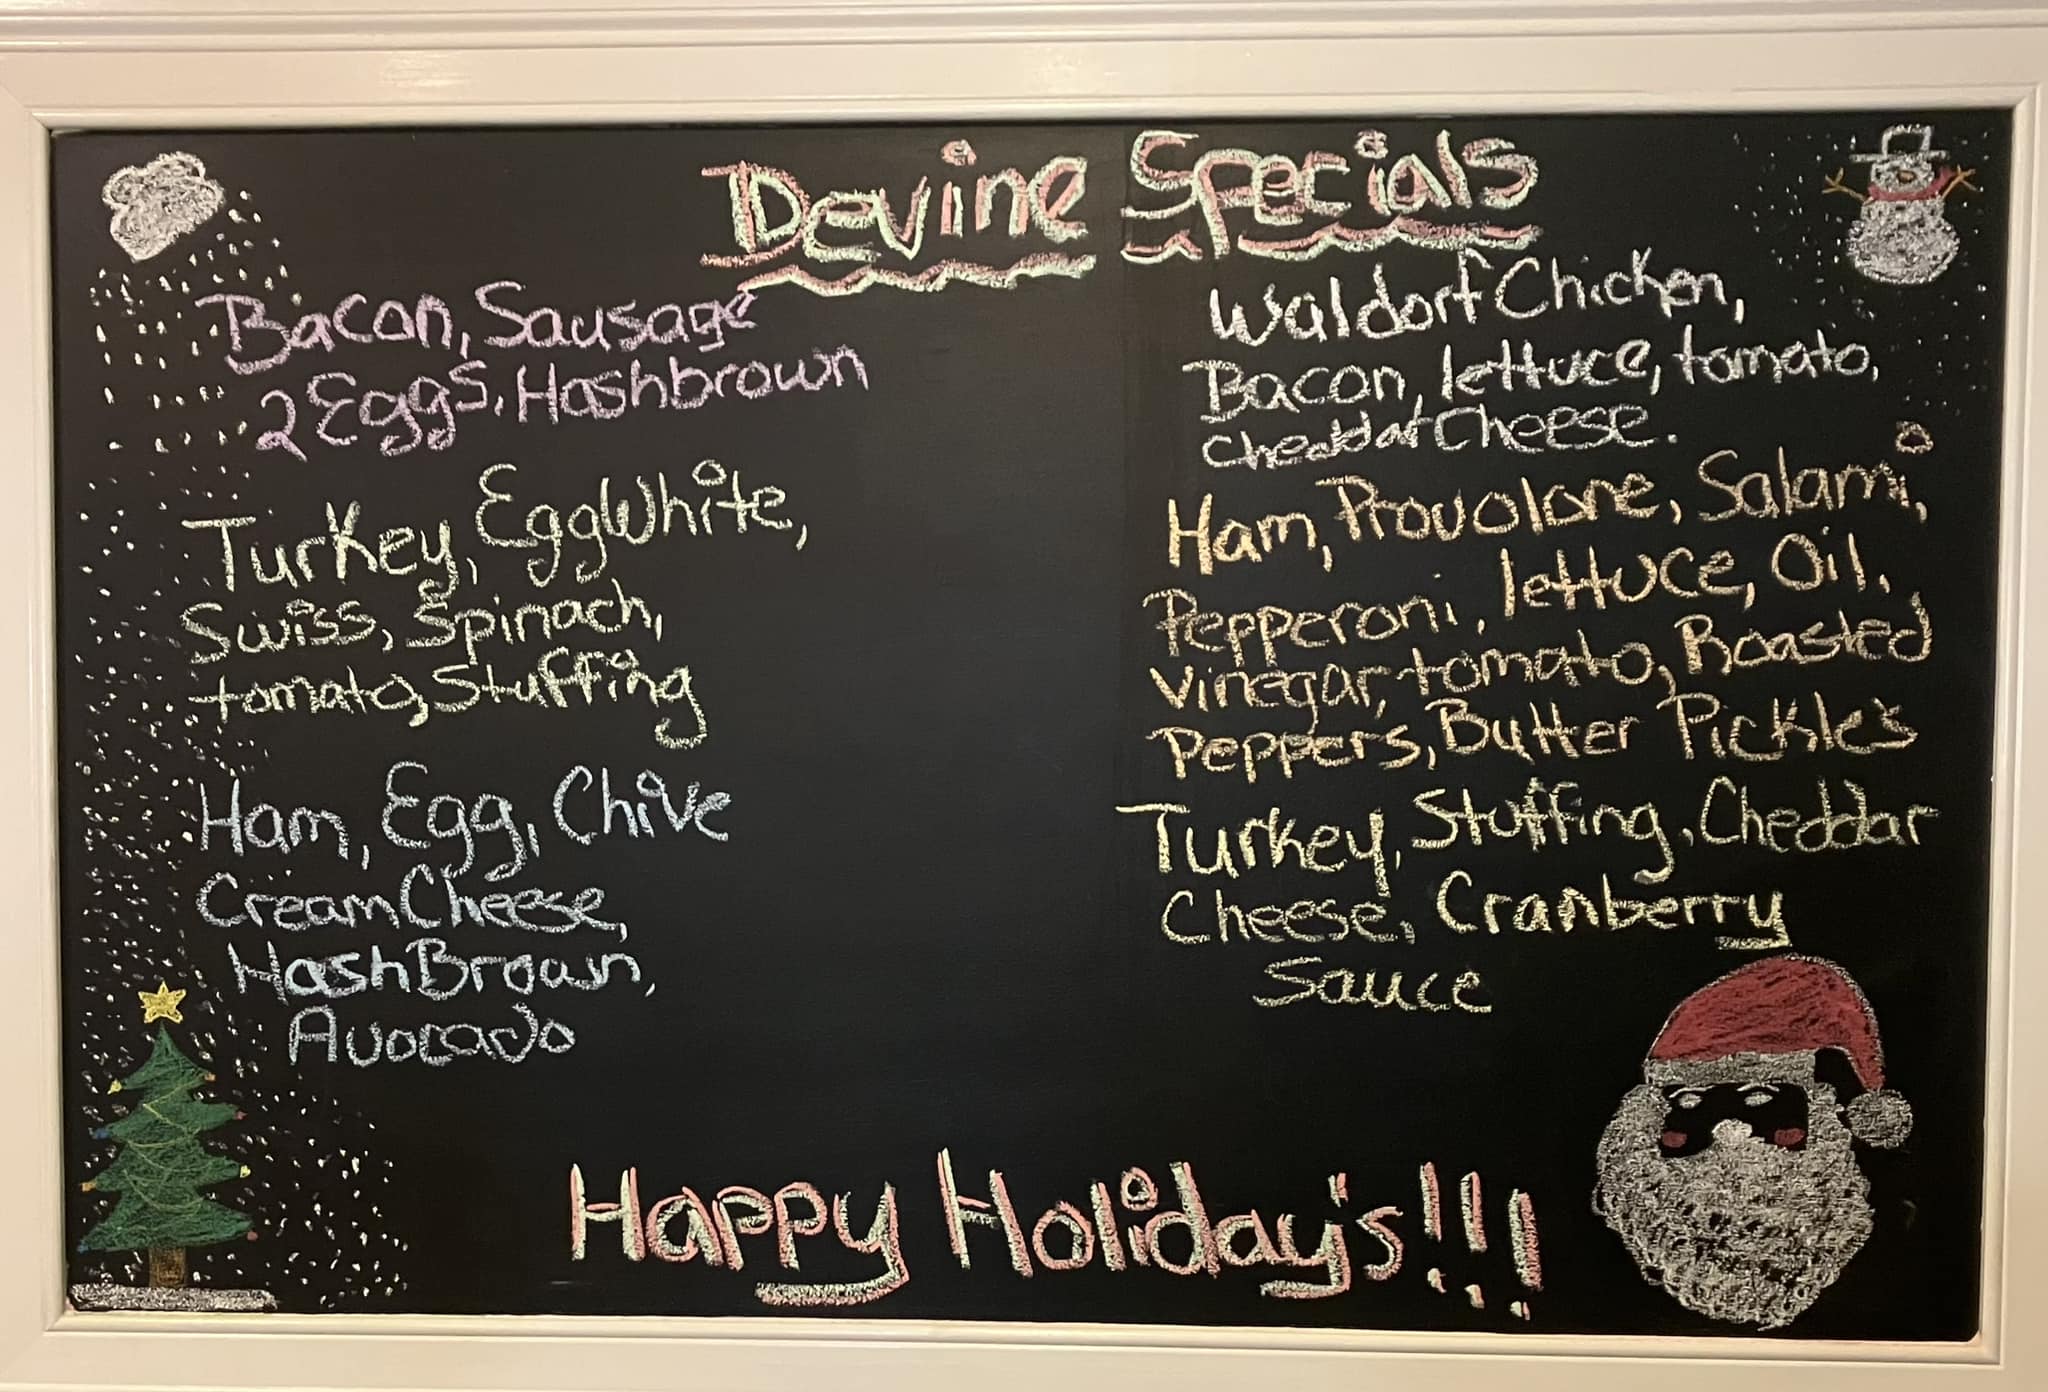 Devine Specials
Bacon, Sausage
2 Eggs, Hashbrown
Turkey, EggWhite,
Swiss, Spinach,
tomato, Stuffing
Ham, Egg, Chive
Cream Cheese,
HashBrown,
Avocado
Waldorf Chicken,
Bacon, lettuce, tomato,
Cheddar Cheese.
Ham, Provolone, Salami,
Pepperoni, lettuce, Oil,
Vinegar, tomato, Roasted
Peppers, Butter Pickles
Turkey, Stuffing, Cheddar
Cheese, Cranberry
Sauce
Happy Holiday's!!!